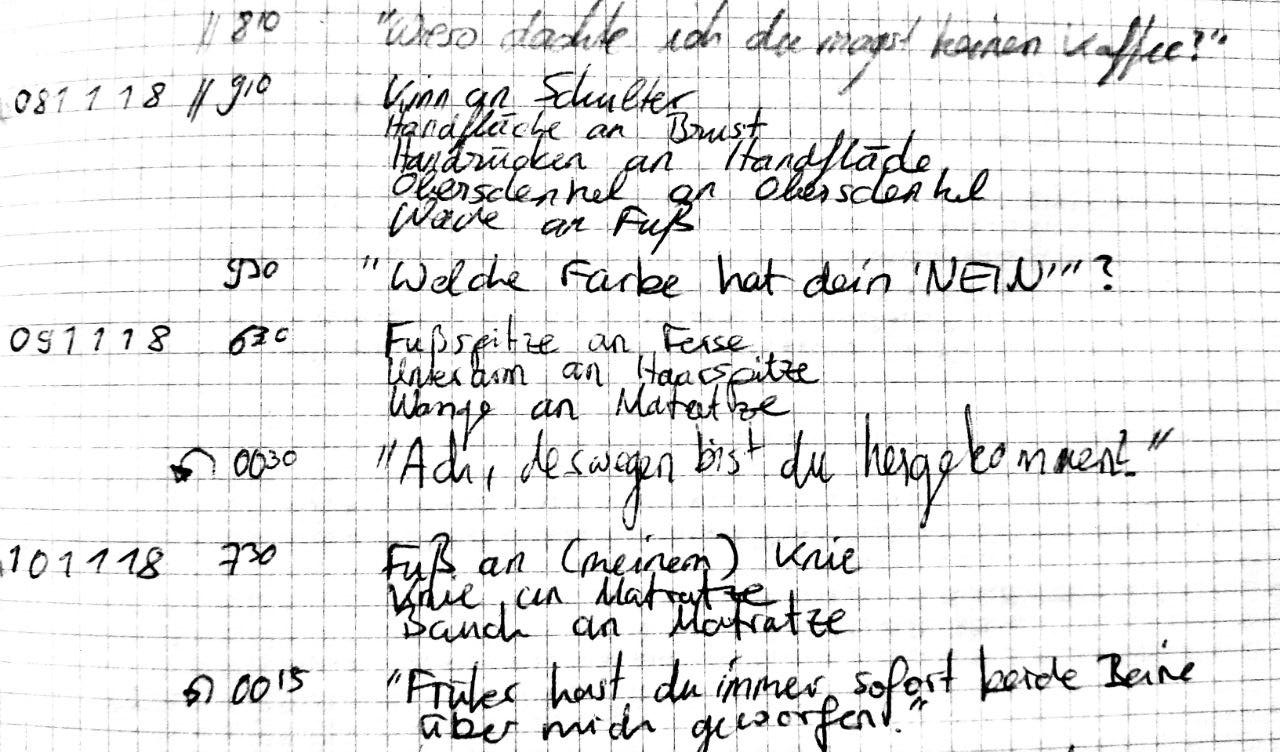 // 8¹⁰ "Wieso dachte ich du magst keinen Kaffee?"
081118 // 9¹⁰ Kinn an Schulter
Handfläche an Brust
Handrücken an Handfläche
Oberschenkel an Oberschenkel
Wade an Fuß
9³⁰ "Welche Farbe hat dein 'NEIN'"?
091118 6³⁰ Fußspitze an Ferse
Unterarm an Haarspitze
Wange an Matratze
00³⁰ "Ach, deswegen bist du hergekommen."
101118 7³⁰ Fuß an (meinem) Knie
Knie an Matratze
Bauch an Matratze
00¹⁵ "Früher hast du immer sofort beide Beine
über mich geworfen."